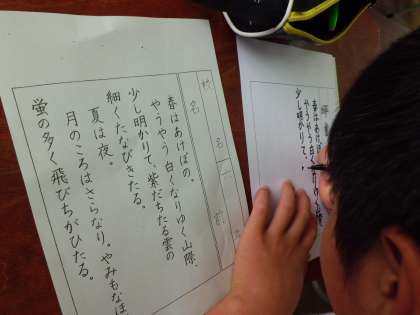 春はあけぼの。
やうやう白くなりゆく山際、
少し明かりて、紫だちたる雲の
細くたなびきたる。
夏は夜。
月のころはさらなり。やみもなほ
蛍の多く飛びちがひたる。
名
春はあけぼの
やうやう白く
少し明かりて、